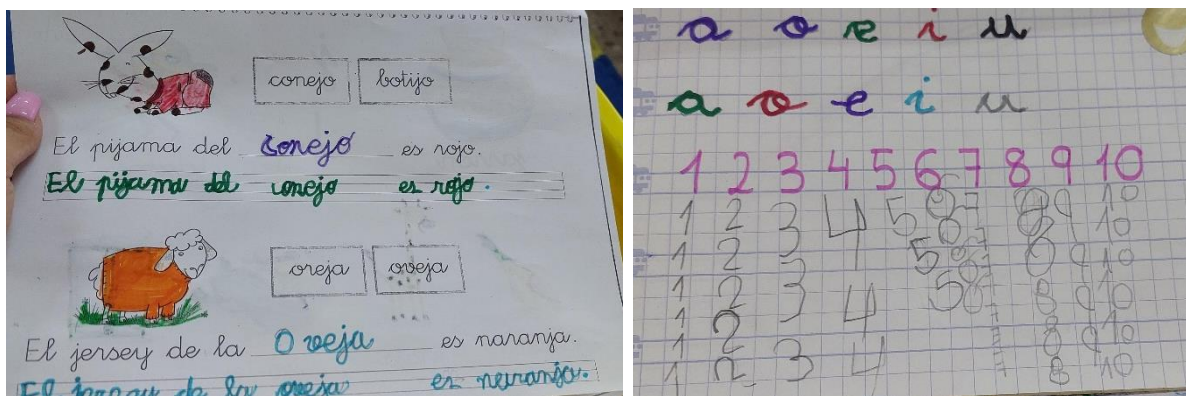 conejo botijo
El pijama del conejo es rojo.
El pijama del conejo es rojo.
oreja oveja
El jersey de la Oveja es naranja.
El jersey de la oveja es naranja.
a o e i u
a o e i u
1 2 3 4 5 6 7 8 9 10
1 2 3 4 5 6 7 8 9 10
1 2 3 4 5 8 9 10
1 2 3 4 5 8 9 10
1 2 8 9 10
1 2 3 4 8 10